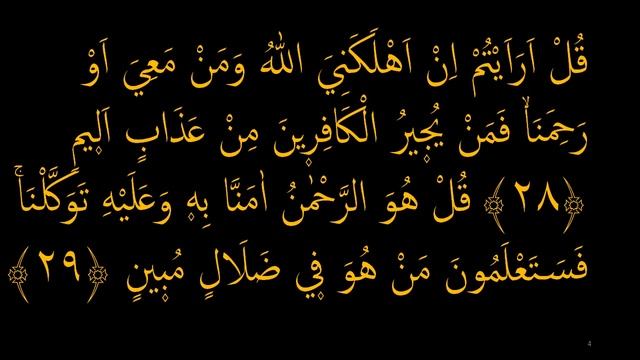 قُلْ اَرَاَيْتُمْ اِنْ اَهْلَكَنِيَ اللّٰهُ وَمَنْ مَعِيَ اَوْ
رَحِمَنَاۙ فَمَنْ يُج۪يرُ الْكَافِر۪ينَ مِنْ عَذَابٍ اَل۪يمٍ
﴿٢٨﴾ قُلْ هُوَ الرَّحْمٰنُ اٰمَنَّا بِه۪ وَعَلَيْهِ تَوَكَّلْنَاۚ
فَسَتَعْلَمُونَ مَنْ هُوَ ف۪ي ضَلَالٍ مُب۪ينٍ ﴿٢٩﴾
4